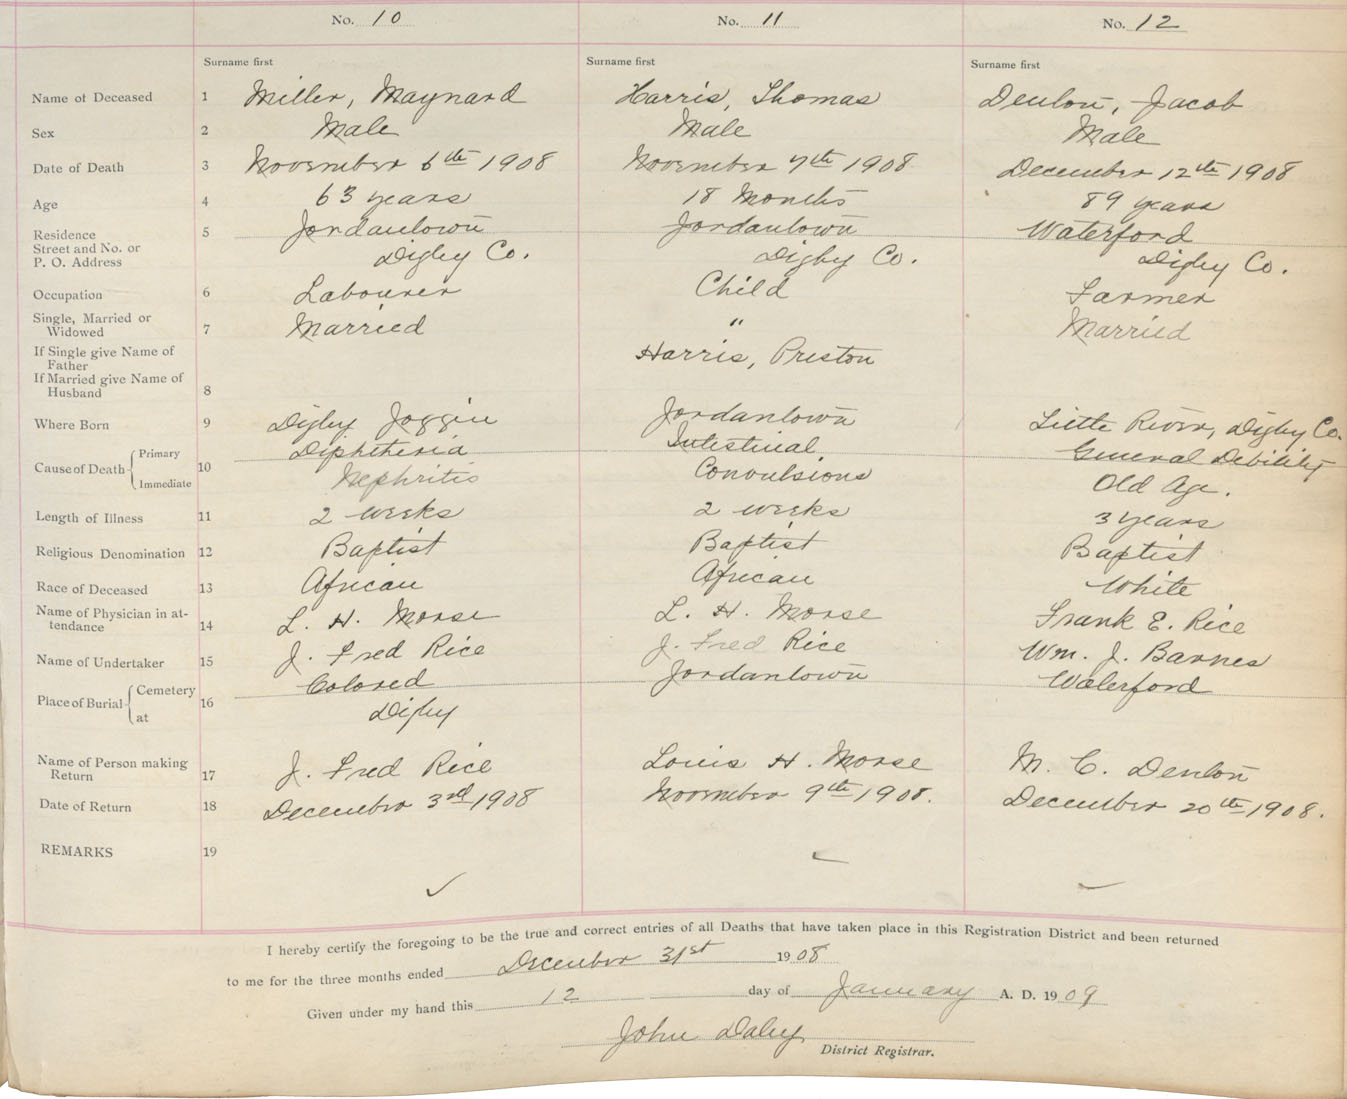 No. 10 No. 11 No. 12
Surname first Surname first Surname first
Name of Deceased 1 Miller, Maynard Harris, Thomas Denton, Jacob
Sex 2 Male Male Male
Date of Death 3 November 6th 1908 November 7th 1908 December 12th 1908
Age 4 63 years 18 Months 89 years
Residence 5 Jordantown Jordantown Waterford
Street and No. or
P. O. Address Digby Co. Digby Co. Digby Co.
Occupation 6 Labourer Child Farmer
Single, Married or
Widowed 7 Married " Married
If Single give Name of
Father Harris, Preston
If Married give Name of
Husband 8
Where Born 9 Digby Joggin Jordantown Little River, Digby Co.
Cause of Death { Primary 10 Diphtheria Intestinal General Debility
Immediate Nephritis Convulsions Old Age.
Length of Illness 11 2 weeks 2 weeks 3 years
Religious Denomination 12 Baptist Baptist Baptist
Race of Deceased 13 African African White
Name of Physician in at-
tendance 14 L. H. Morse L. H. Morse Frank E. Rice
Name of Undertaker 15 J. Fred Rice J. Fred Rice Wm. J. Barnes
Place of Burial { Cemetery 16 Colored Jordantown Waterford
at Digby
Name of Person making
Return 17 J. Fred Rice Louis H. Morse M. C. Denton
Date of Return 18 December 3rd 1908 November 9th 1908. December 20th 1908.
REMARKS 19
I hereby certify the foregoing to be the true and correct entries of all Deaths that have taken place in this Registration District and been returned
to me for the three months ended December 31st 1908
Given under my hand this 12 day of January A. D. 1909
John Daley
District Registrar.